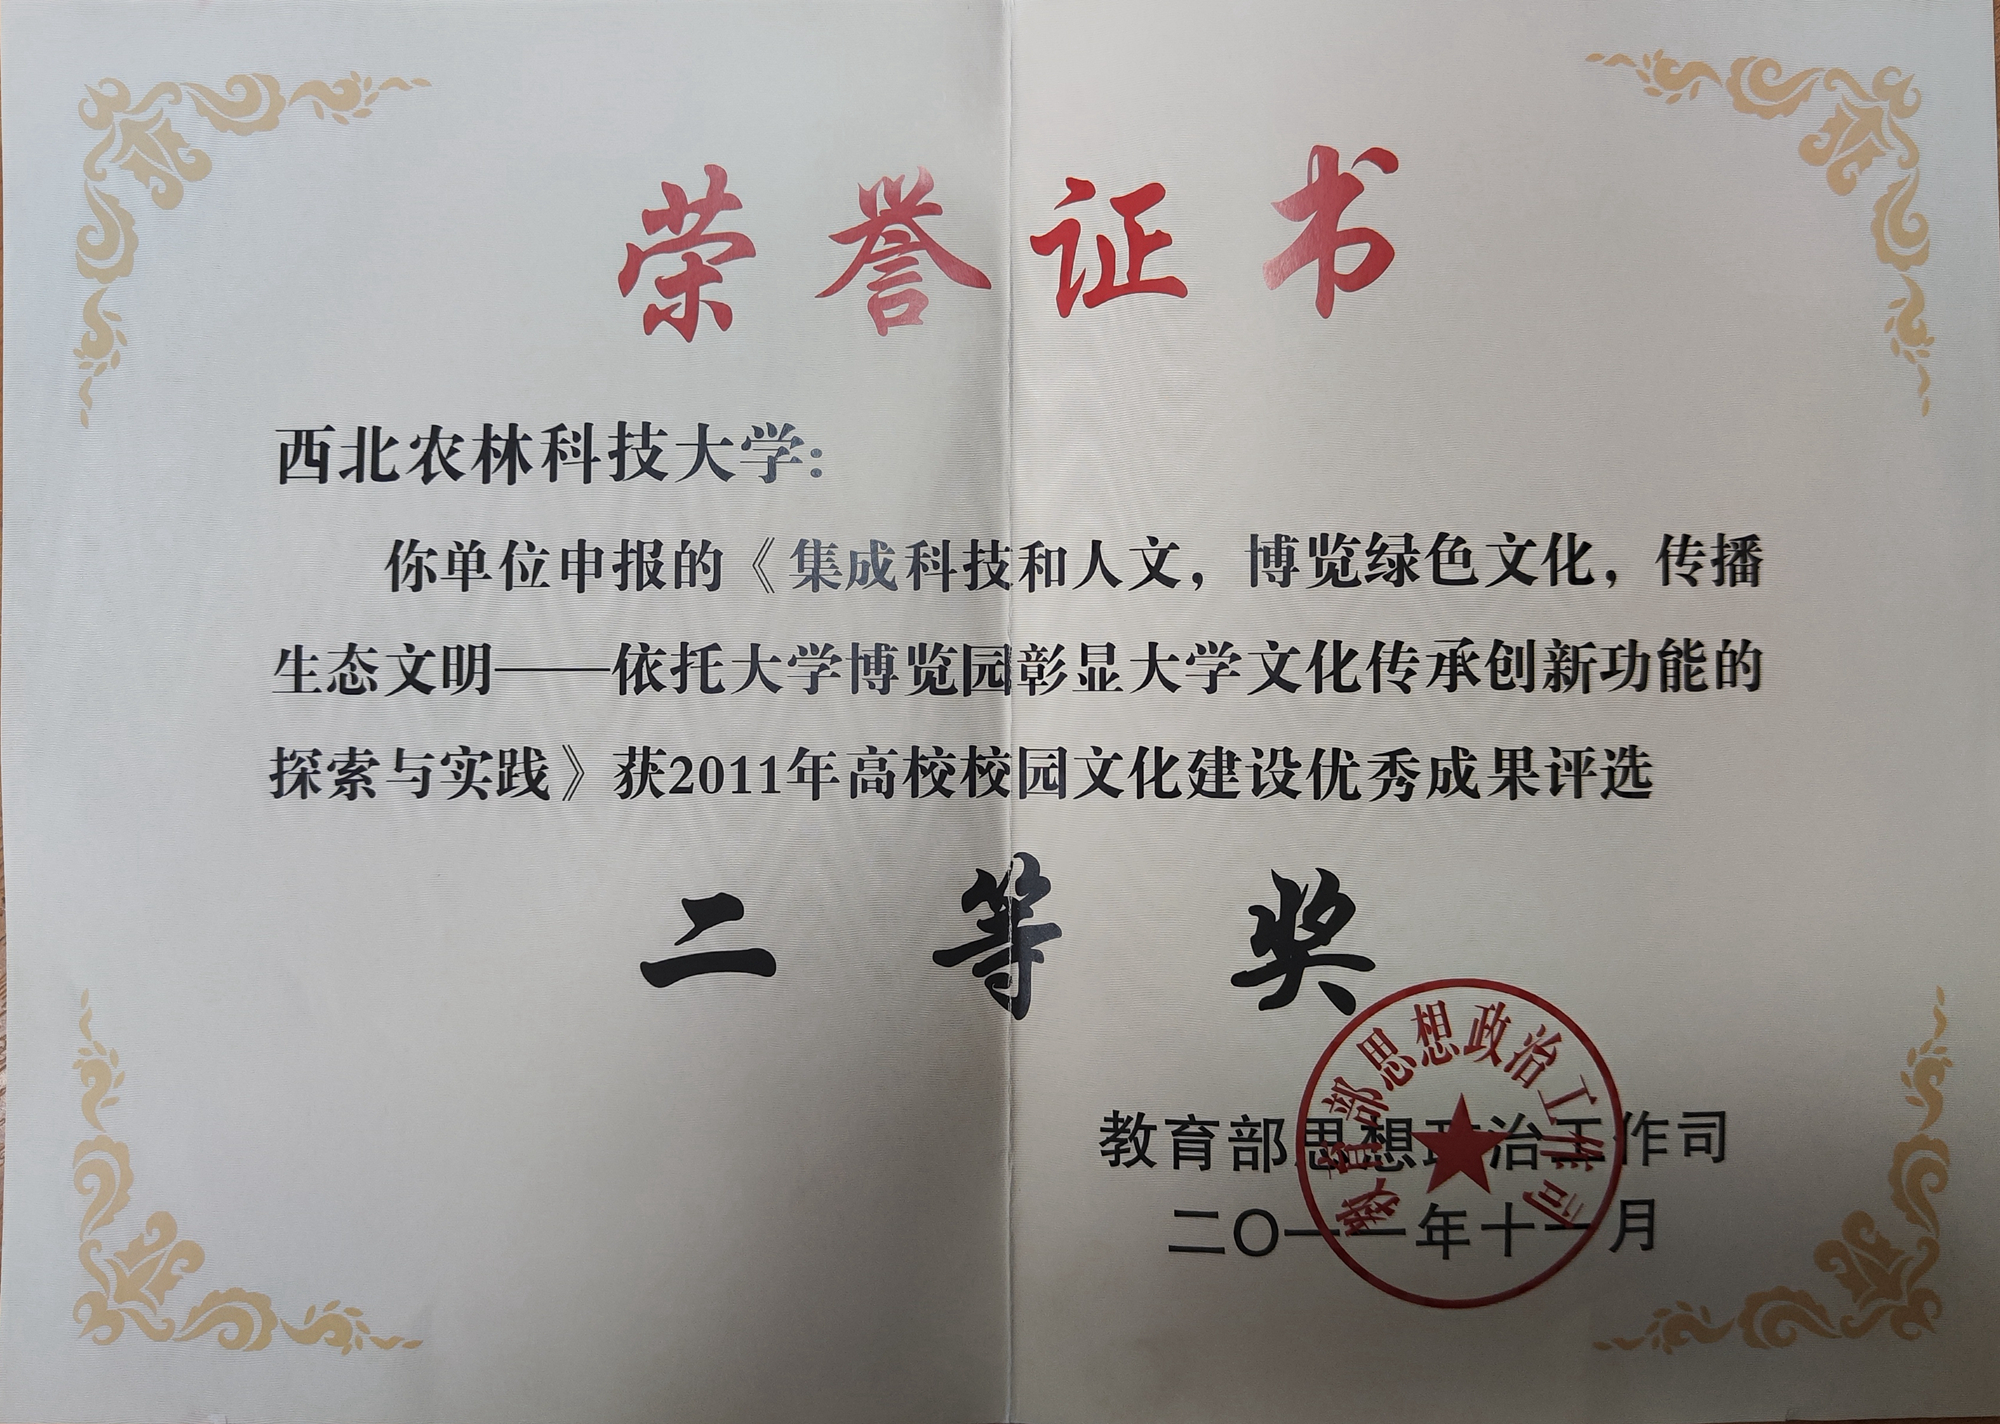 荣誉证书
西北农林科技大学：
你单位申报的《集成科技和人文，博览绿色文化，传播
生态文明——依托大学博览园彰显大学文化传承创新功能的
探索与实践》获2011年高校校园文化建设优秀成果评选
二等奖
教育部思想政治工作司
二〇一一年十一月
教育部思想政治工作司